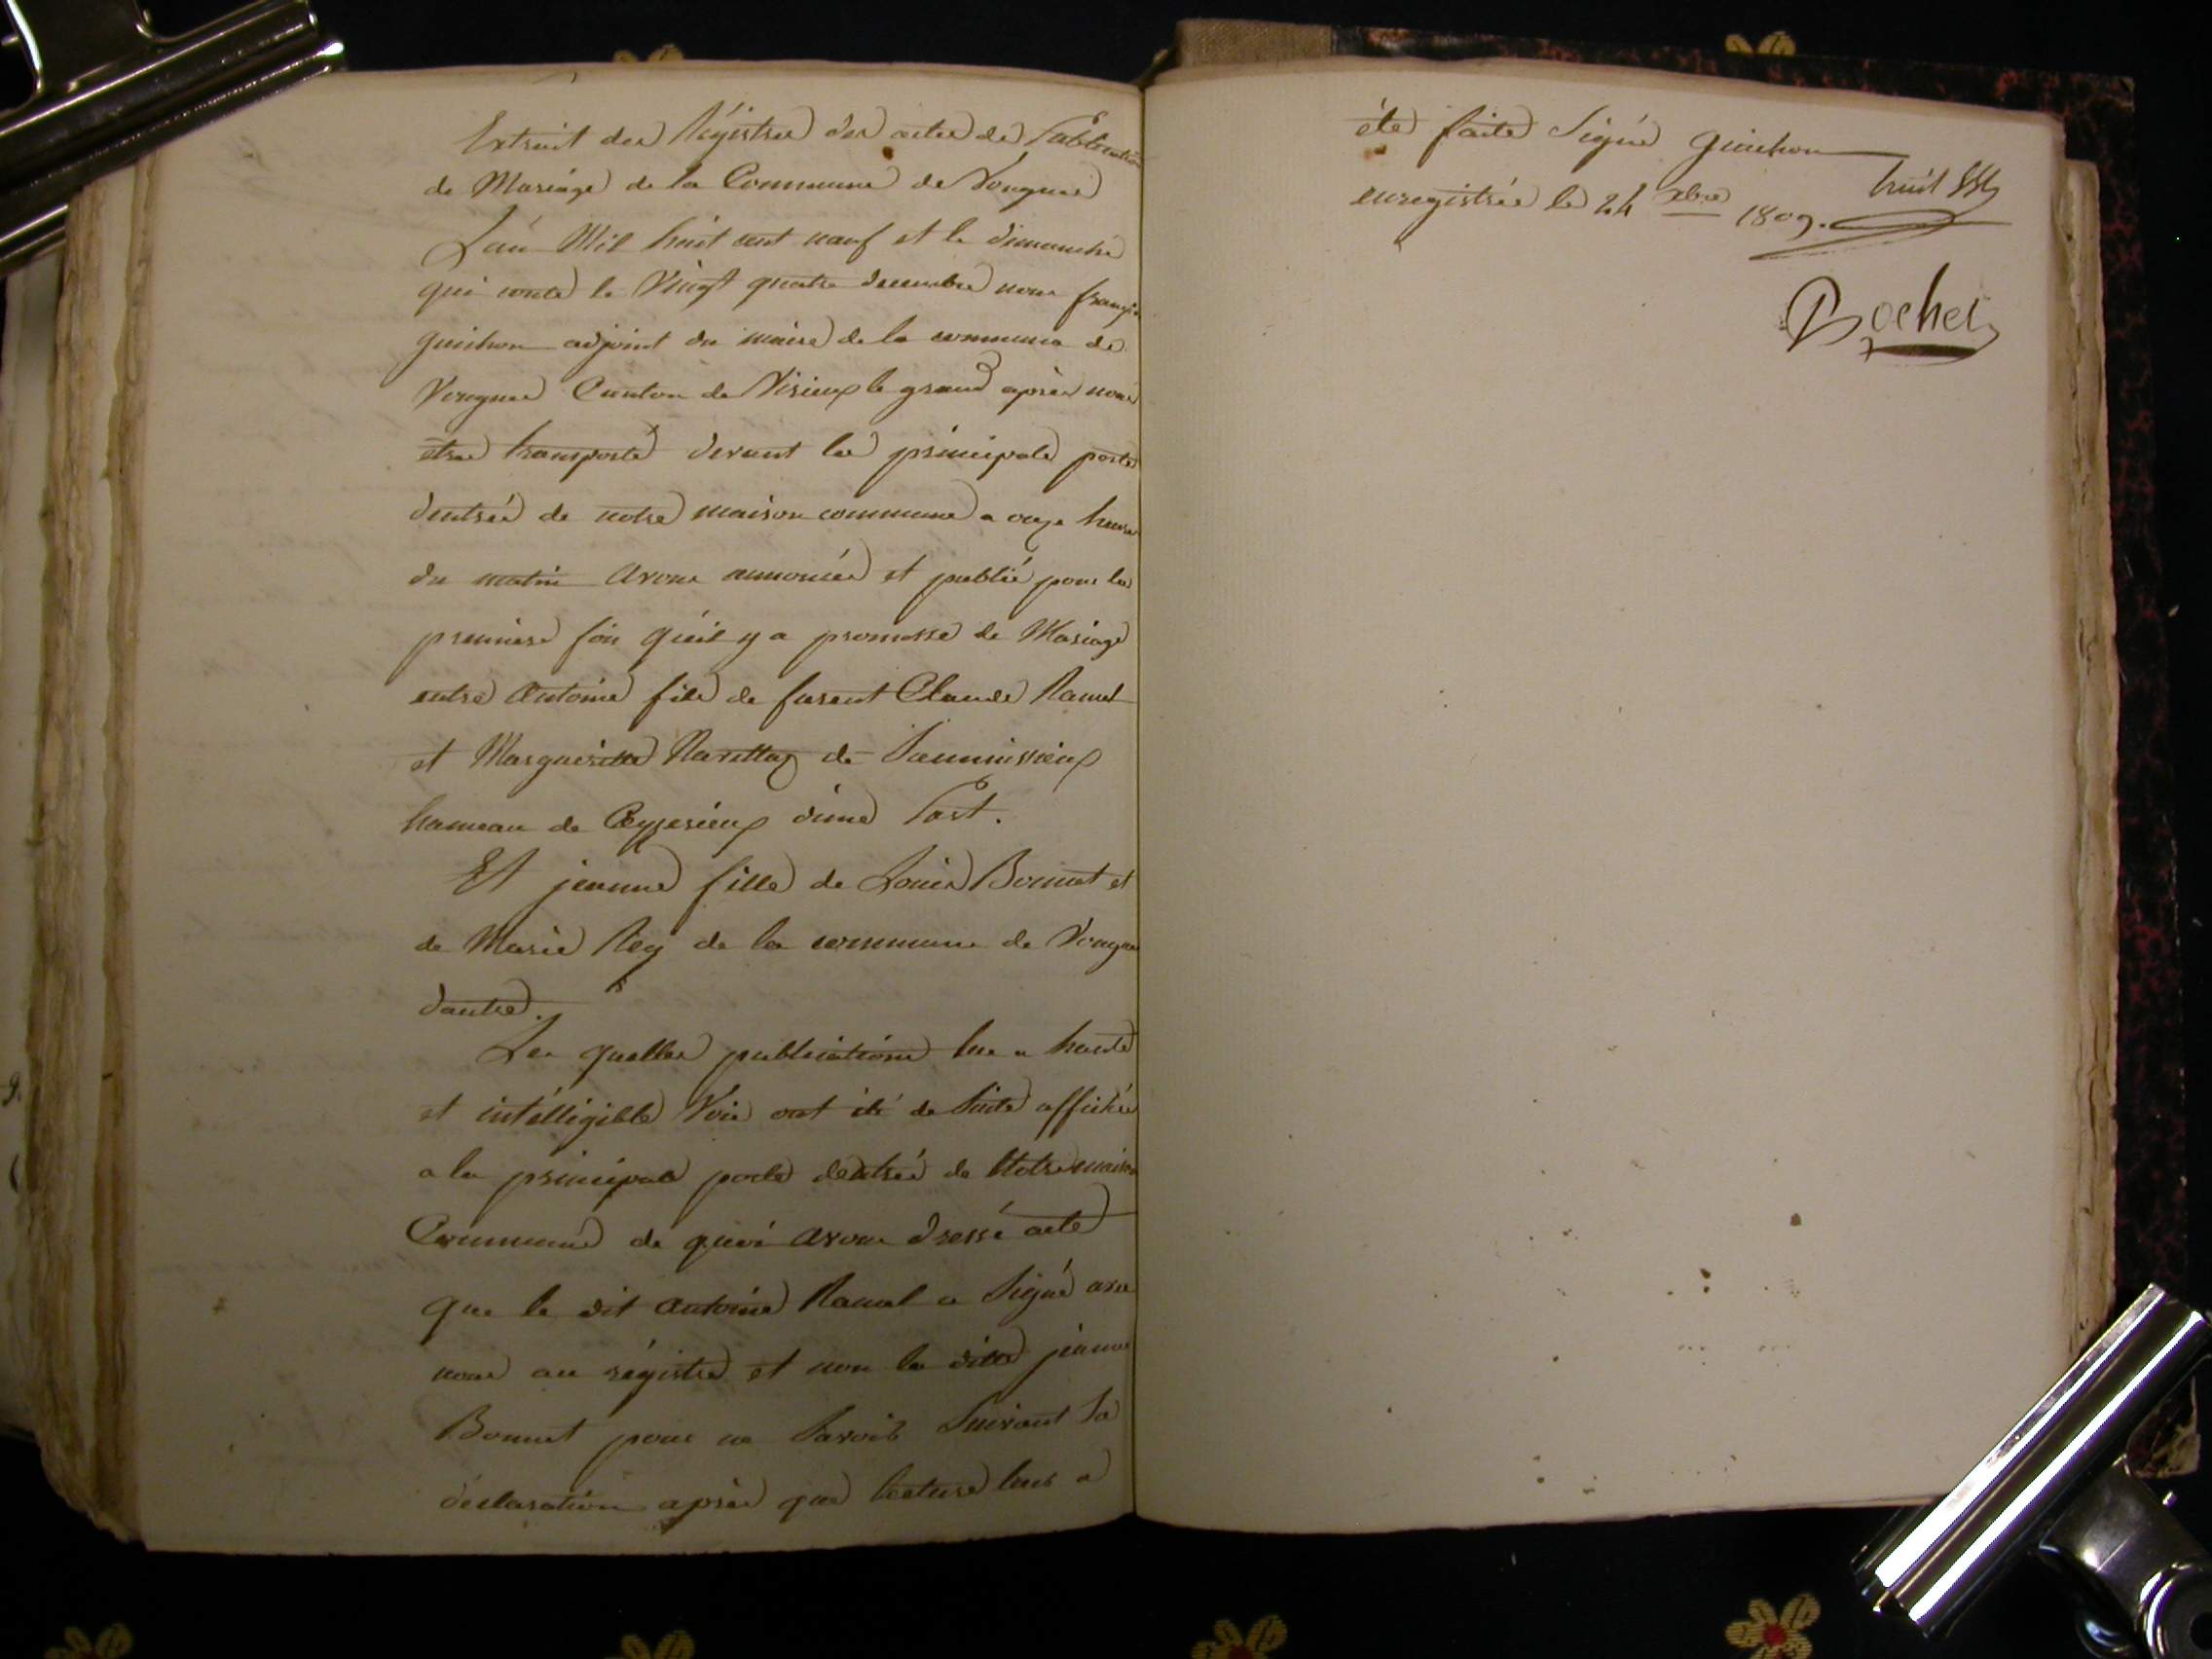 Extrait des Régistres des actes de Publication
de Mariage de la Commune de Vongnes
L'an Mil huit cent neuf et le dimanche
qui conte le Vingt quatre decembre nous françois
guichon adjoint du maire de la commune de
Vongnes Canton de Virieux le grand après nous
être transporté devant la principale porte
dentrée de notre maison commune a onze heures
du matin avons annoncée et publié pour la
premiere fois qu'il y a promesse de Mariage
entre Antoine fils de furent Claude Ramel
et Margueritte de
hameau de Ceyzerieux d'une Part.
Et jeanne fille de Louis Bonnet et
de Marie Rey de la commune de Vongnes
dautre.
Les quelles publications lue a haute
et intélligible Voix ont été de Suite affichée
a la principale porte dentrée de Notre maison
Commune de quoi avons dressé acte
que le dit antoine Ramel a Signé avec
nous au régistre et non la ditte jeanne
Bonnet pour ne Savoir Suivant Sa
déclaration après que lecture leur a
été faite Signé guichon
enregistrée le 24 Xbre 1809.
Bochet